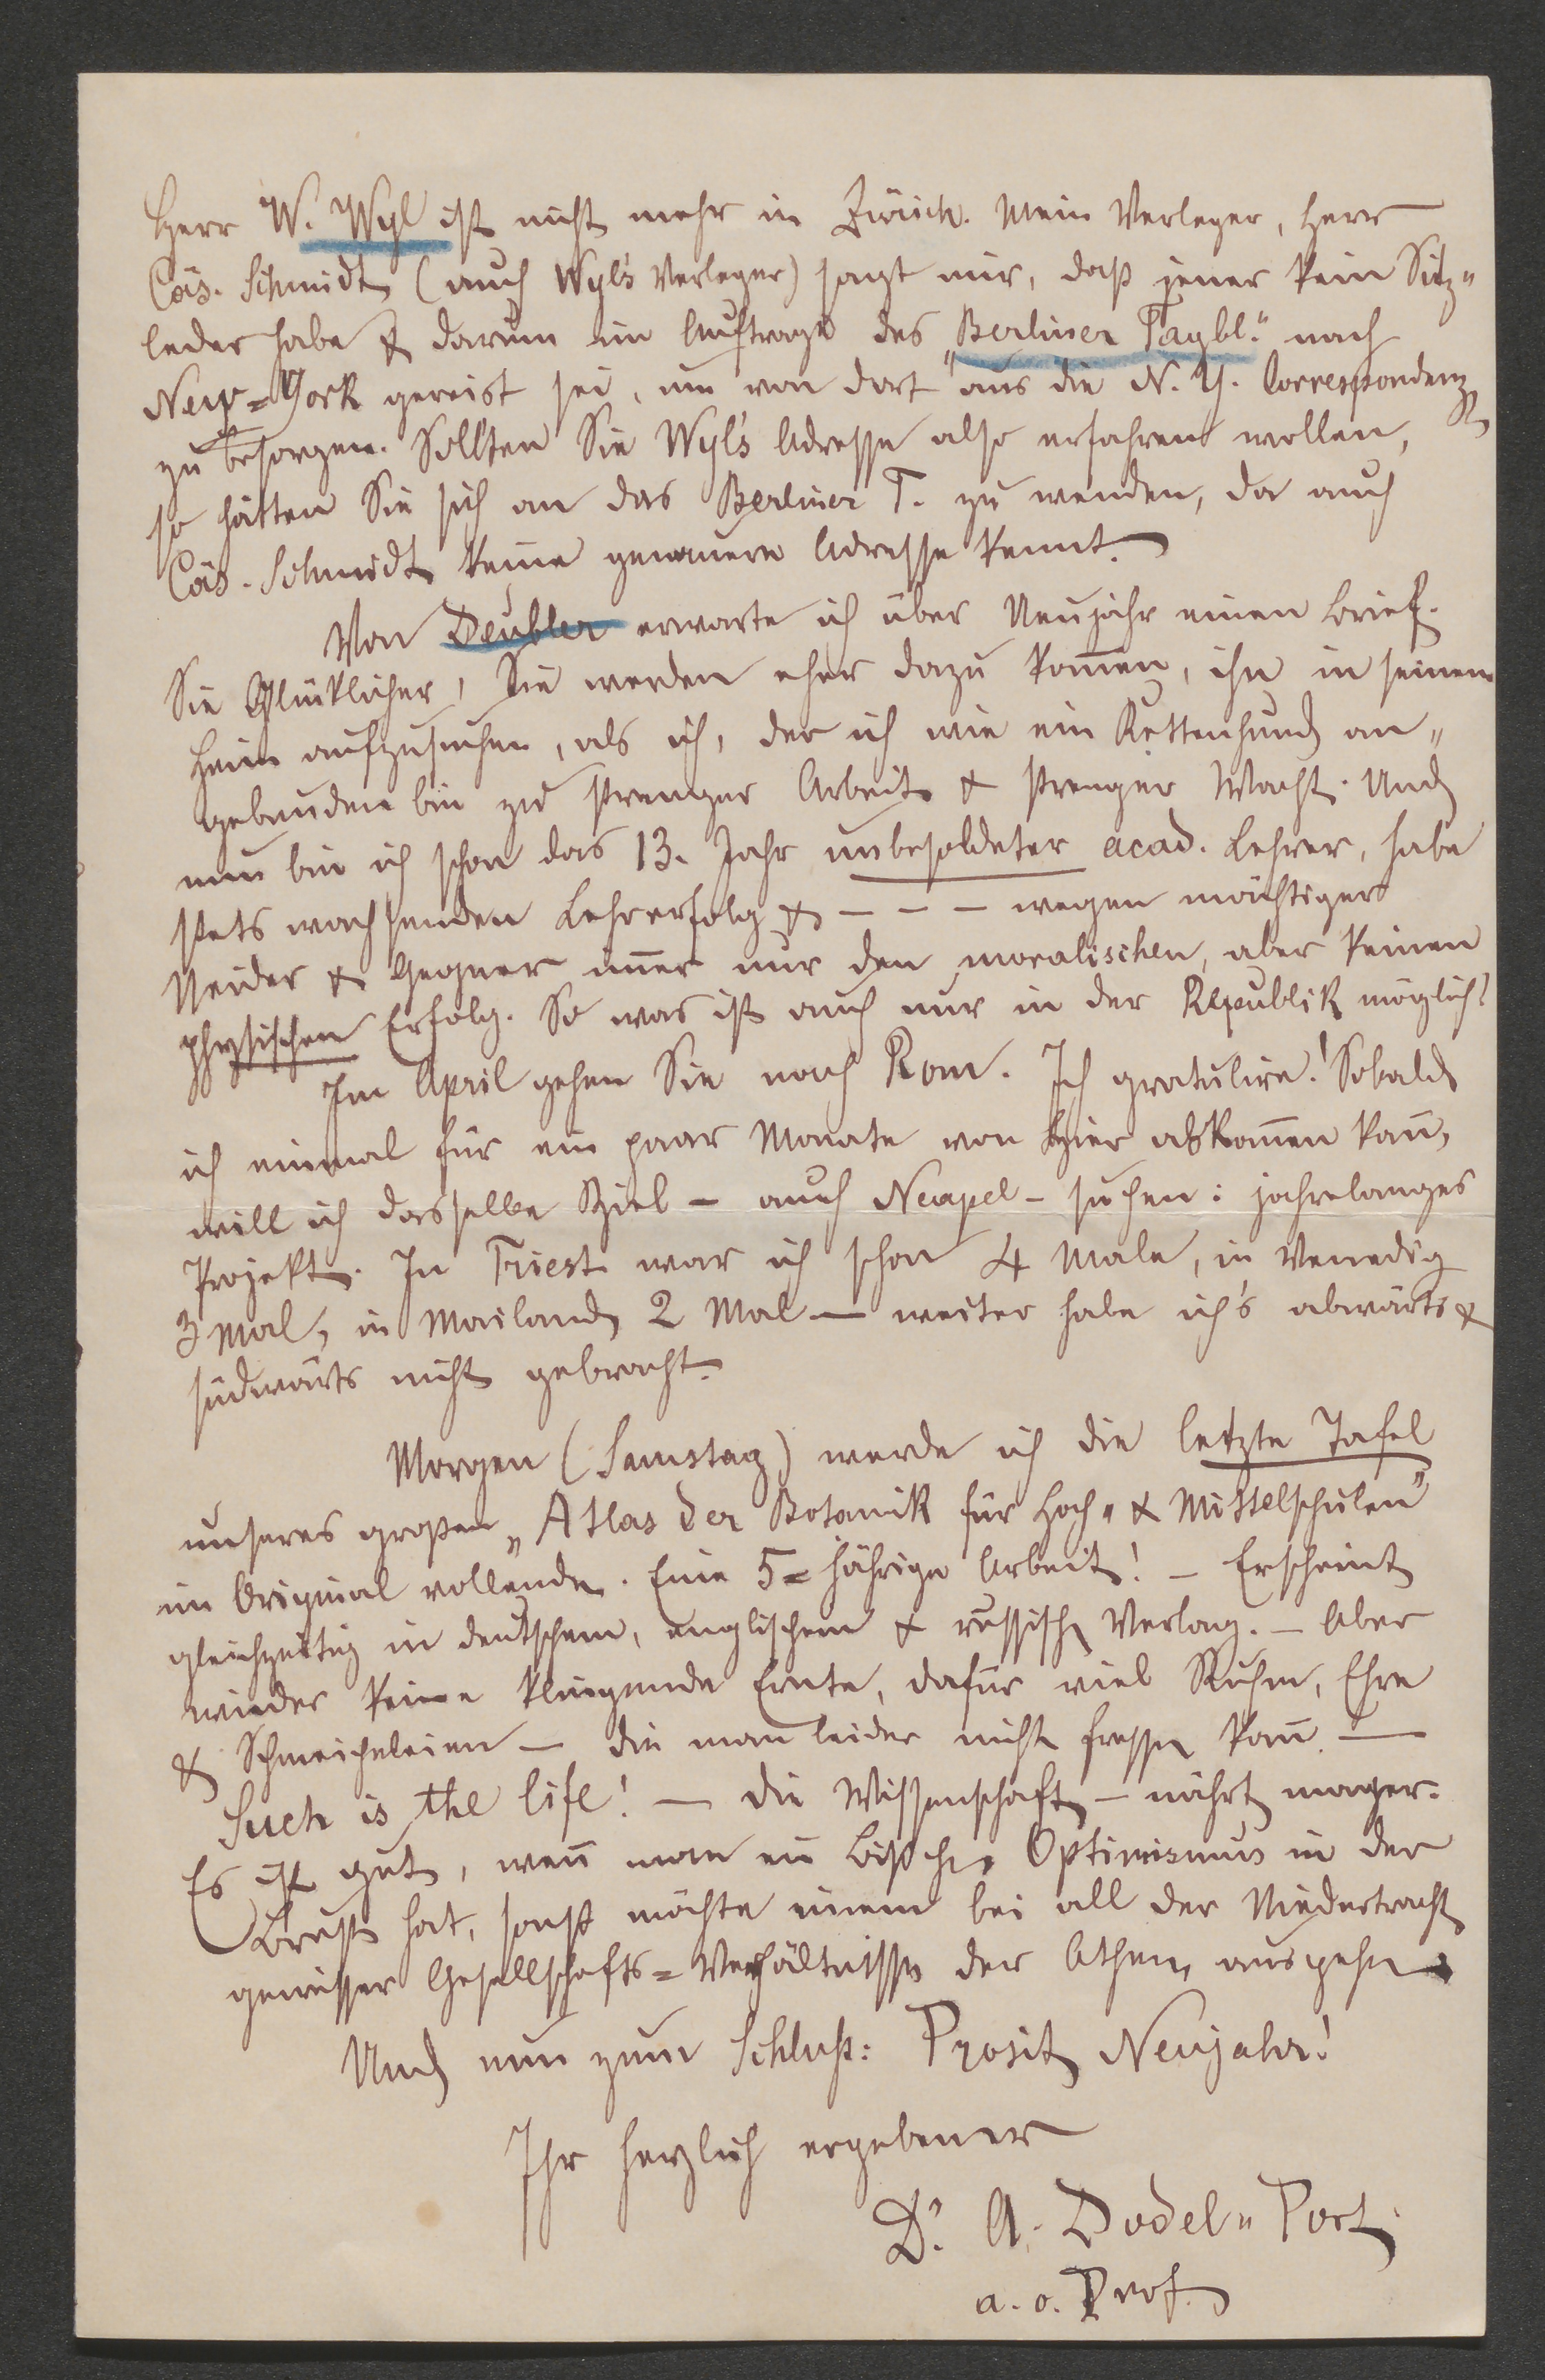 Herr W. Wyl ist nicht mehr in Zürich. Mein Verleger, Herr
Cäs. Schmidt (auch Wyl's Verleger) sagt mir, daß jener kein Sitz-
leder habe & darum im Auftrage des „Berliner Tagbl." nach
New-York gereist sei, um von dort aus die N. Y. Correspondenz
zu besorgen. Sollten Sie Wyl's Adresse also erfahren wollen,
so hätten Sie sich an das Berliner T. zu wenden, da auch
Cäs. Schmidt keine genauere Adresse kennt.
Von Deubler erwarte ich über Neujahr einen Brief.
Sie Glücklicher, Sie werden eher dazu kom̄en, ihn in seinem
Heim aufzusuchen, als ich, der ich wie ein Kettenhund an-
gebunden bin zu strenger Arbeit & strenger Wacht. Und
nun bin ich schon das 13. Jahr unbesoldeter acad. Lehrer, habe
stets wachsenden Lehrerfolg & – – – wegen mächtiger
Neider & Gegner im̄er nur den moralischen, aber keinen
physischen Erfolg. So was ist auch nur in der Republik möglich!
Im April gehen Sie nach Rom. Ich gratulire! Sobald
ich einmal für ein paar Monate von hier abkom̄en kan̄,
will ich dasselbe Ziel – auch Neapel – suchen: jahrelanges
Projekt. In Triest war ich schon 4 Male, in Venedig
3 Mal, in Mailand 2 Mal – weiter habe ich's abwärts &
südwärts nicht gebracht.
Morgen (Samstag) werde ich die letzte Tafel
unseres großen „Atlas der Botanik für Hoch- & Mittelschulen"
im Original vollenden. Eine 5-jährige Arbeit! – Erscheint
gleichzeitig in deutschem, englischem & russisch Verlag. – Aber
wieder keine klingende Ernte, dafür viel Ruhm, Ehre
& Schmeicheleien – die man leider nicht fressen kan̄. –
Such is the life! – Die Wissenschaft – nährt mager.
Es ist gut, wen̄ man ein Bißchen Optimismus in der
Brust hat, sonst möchte einem bei all der Niedertracht
gewisser Gesellschafts-Verhältnisse der Athem ausgehen.
Und nun zum Schluß: Prosit Neujahr!
Ihr herzlich ergebener
Dr. A. Dodel-Port.
a. o. Prof.